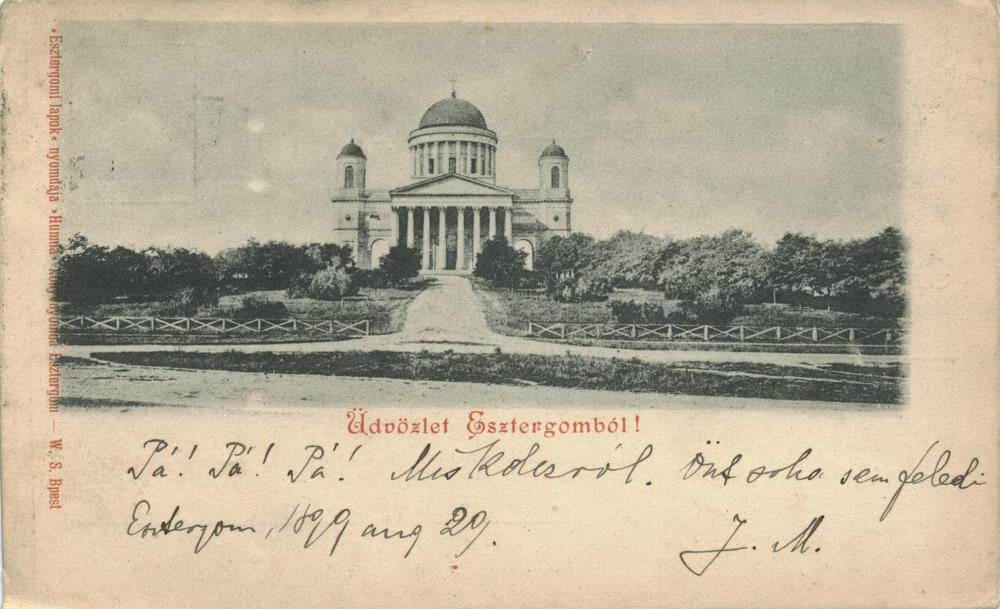 »Esztergomi lapok« nyomdája »Hunnia« Könyvnyomda Esztergom — W. S. Bpest
Üdvözlet Esztergomból!
Pá! Pá! Pá! Miskolczról. Önt soha sem feledi
Esztergom, 1899 aug 29. J. M.